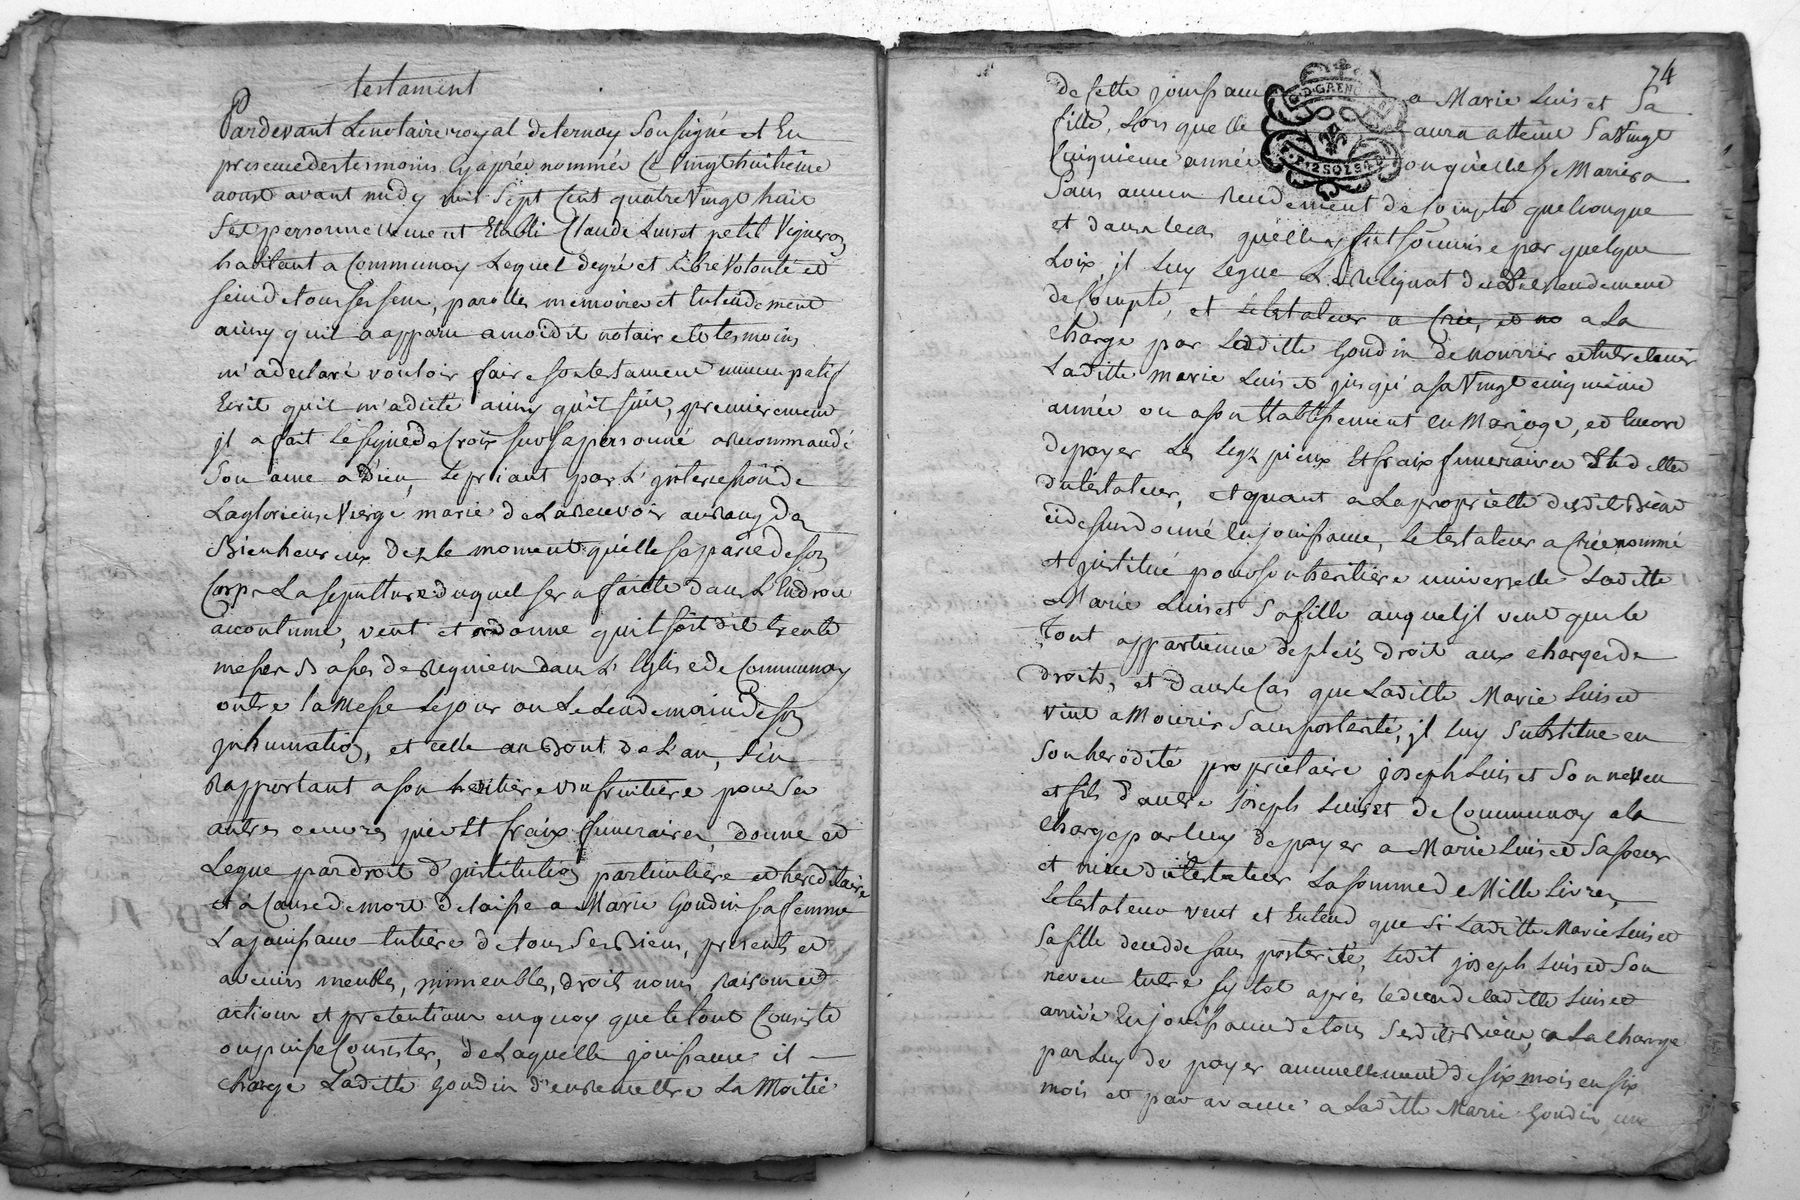 testament
Pardevant Le notaire royal de ternay Soussigné et En
presence des tesmoins cy après nommés Ce vingt huitième
aoust avant midy mil Sept Cent quatre vingt huit
S'est personnellement Etabli Claude Luiset petit Vigneron
habitant a Communay Lequel de gré et Libre Volonté et
sein de tous ses sens, parolles memoire et Entendement
ainsy qu'il a apparu a moidit notaire et tesmoins
m'a declaré vouloir faire son testament nuncupatif
Ecrit qu'il m'a dicté ainsy qu'il suit, premierement
jl a fait Le signe de Croix sur sa personne a recommandé
Son ame a Dieu, Le priant par L'jntercession de
La glorieuse Vierge marie de La recevoir au rang des
Bienheureux dez Le moment qu'elle separée de son
Corps La sepulture duquel sera faicte dans L'Endroit
accoutumé, veut et ordonne qu'il soit dit trente
messes basses de Requiem dans L'Eglise de Communay
outre La Messe Le jour ou Le Lendemain de son
jnhumation, et celle au bout de L'an, s'en
Rapportant a son heritiere usufruitiere pour Ses
autres oeuvres pies et fraix funeraires, donne et
Legue par droit d'jnstitution particuliere et hereditaire
et a Cause de mort delaisse a Marie Goudin sa femme
La jouissance Entiere de tous Ses Biens, presents et
avenirs meubles, jmmeubles, droits noms raisons et
actions et pretentions en quoy que le tout Consiste
ou puisse Consister, de Laquelle jouissance il
charge Laditte Goudin d'en remettre La Moitié
74
de Cette jouissance a Marie Luiset Sa
fille, Lors quelle aura atteint Sa Vingt
Cinquieme année ou qu'elle se Mariera
Sans aucun rendement de Compte quelconque
et dans le cas quelle y fut soumise par quelque
Loix, jl Luy Legue Le reliquat dudit rendement
de Compte, et Le testateur a Créé, et no a La
charge par Laditte Goudin de nourrir et Entretenir
Laditte marie Luiset jusqu'a sa Vingt cinquième
année ou a son Etablissement en Mariage, et Encore
de payer Les Legz pieux Et fraix funeraires Et dettes
du testateur, et quant a La proprietté desdits Biens
cidessus donné En jouissance, Le testateur a Créé nommé
et jnstitué pour son heritiere universelle Laditte
Marie Luiset Sa fille auquel jl veut que le
Tout appartienne de plein droit aux charges de
droits, et dans le Cas que Laditte Marie Luiset
vint a Mourir Sans posterité, jl Luy Substitue en
Son herédité proprietaire joseph Luiset Son neveu
et fils d'autre joseph Luiset de Communay a la
charge par Luy de payer a Marie Luiset Sa soeur
et niece du testateur La somme de Mille Livres,
Le testateur veut et Entend que Si Laditte Marie Luiset
Sa fille decedde sans posterité, Ledit joseph Luiset Son
neveu Entre sy tot après le deces de laditte Luiset
arrivé En jouissance de tous Sesdits Biens, a La charge
par Luy de payer annuellement de six mois en six
mois et par avance a Laditte Marie Goudin, une